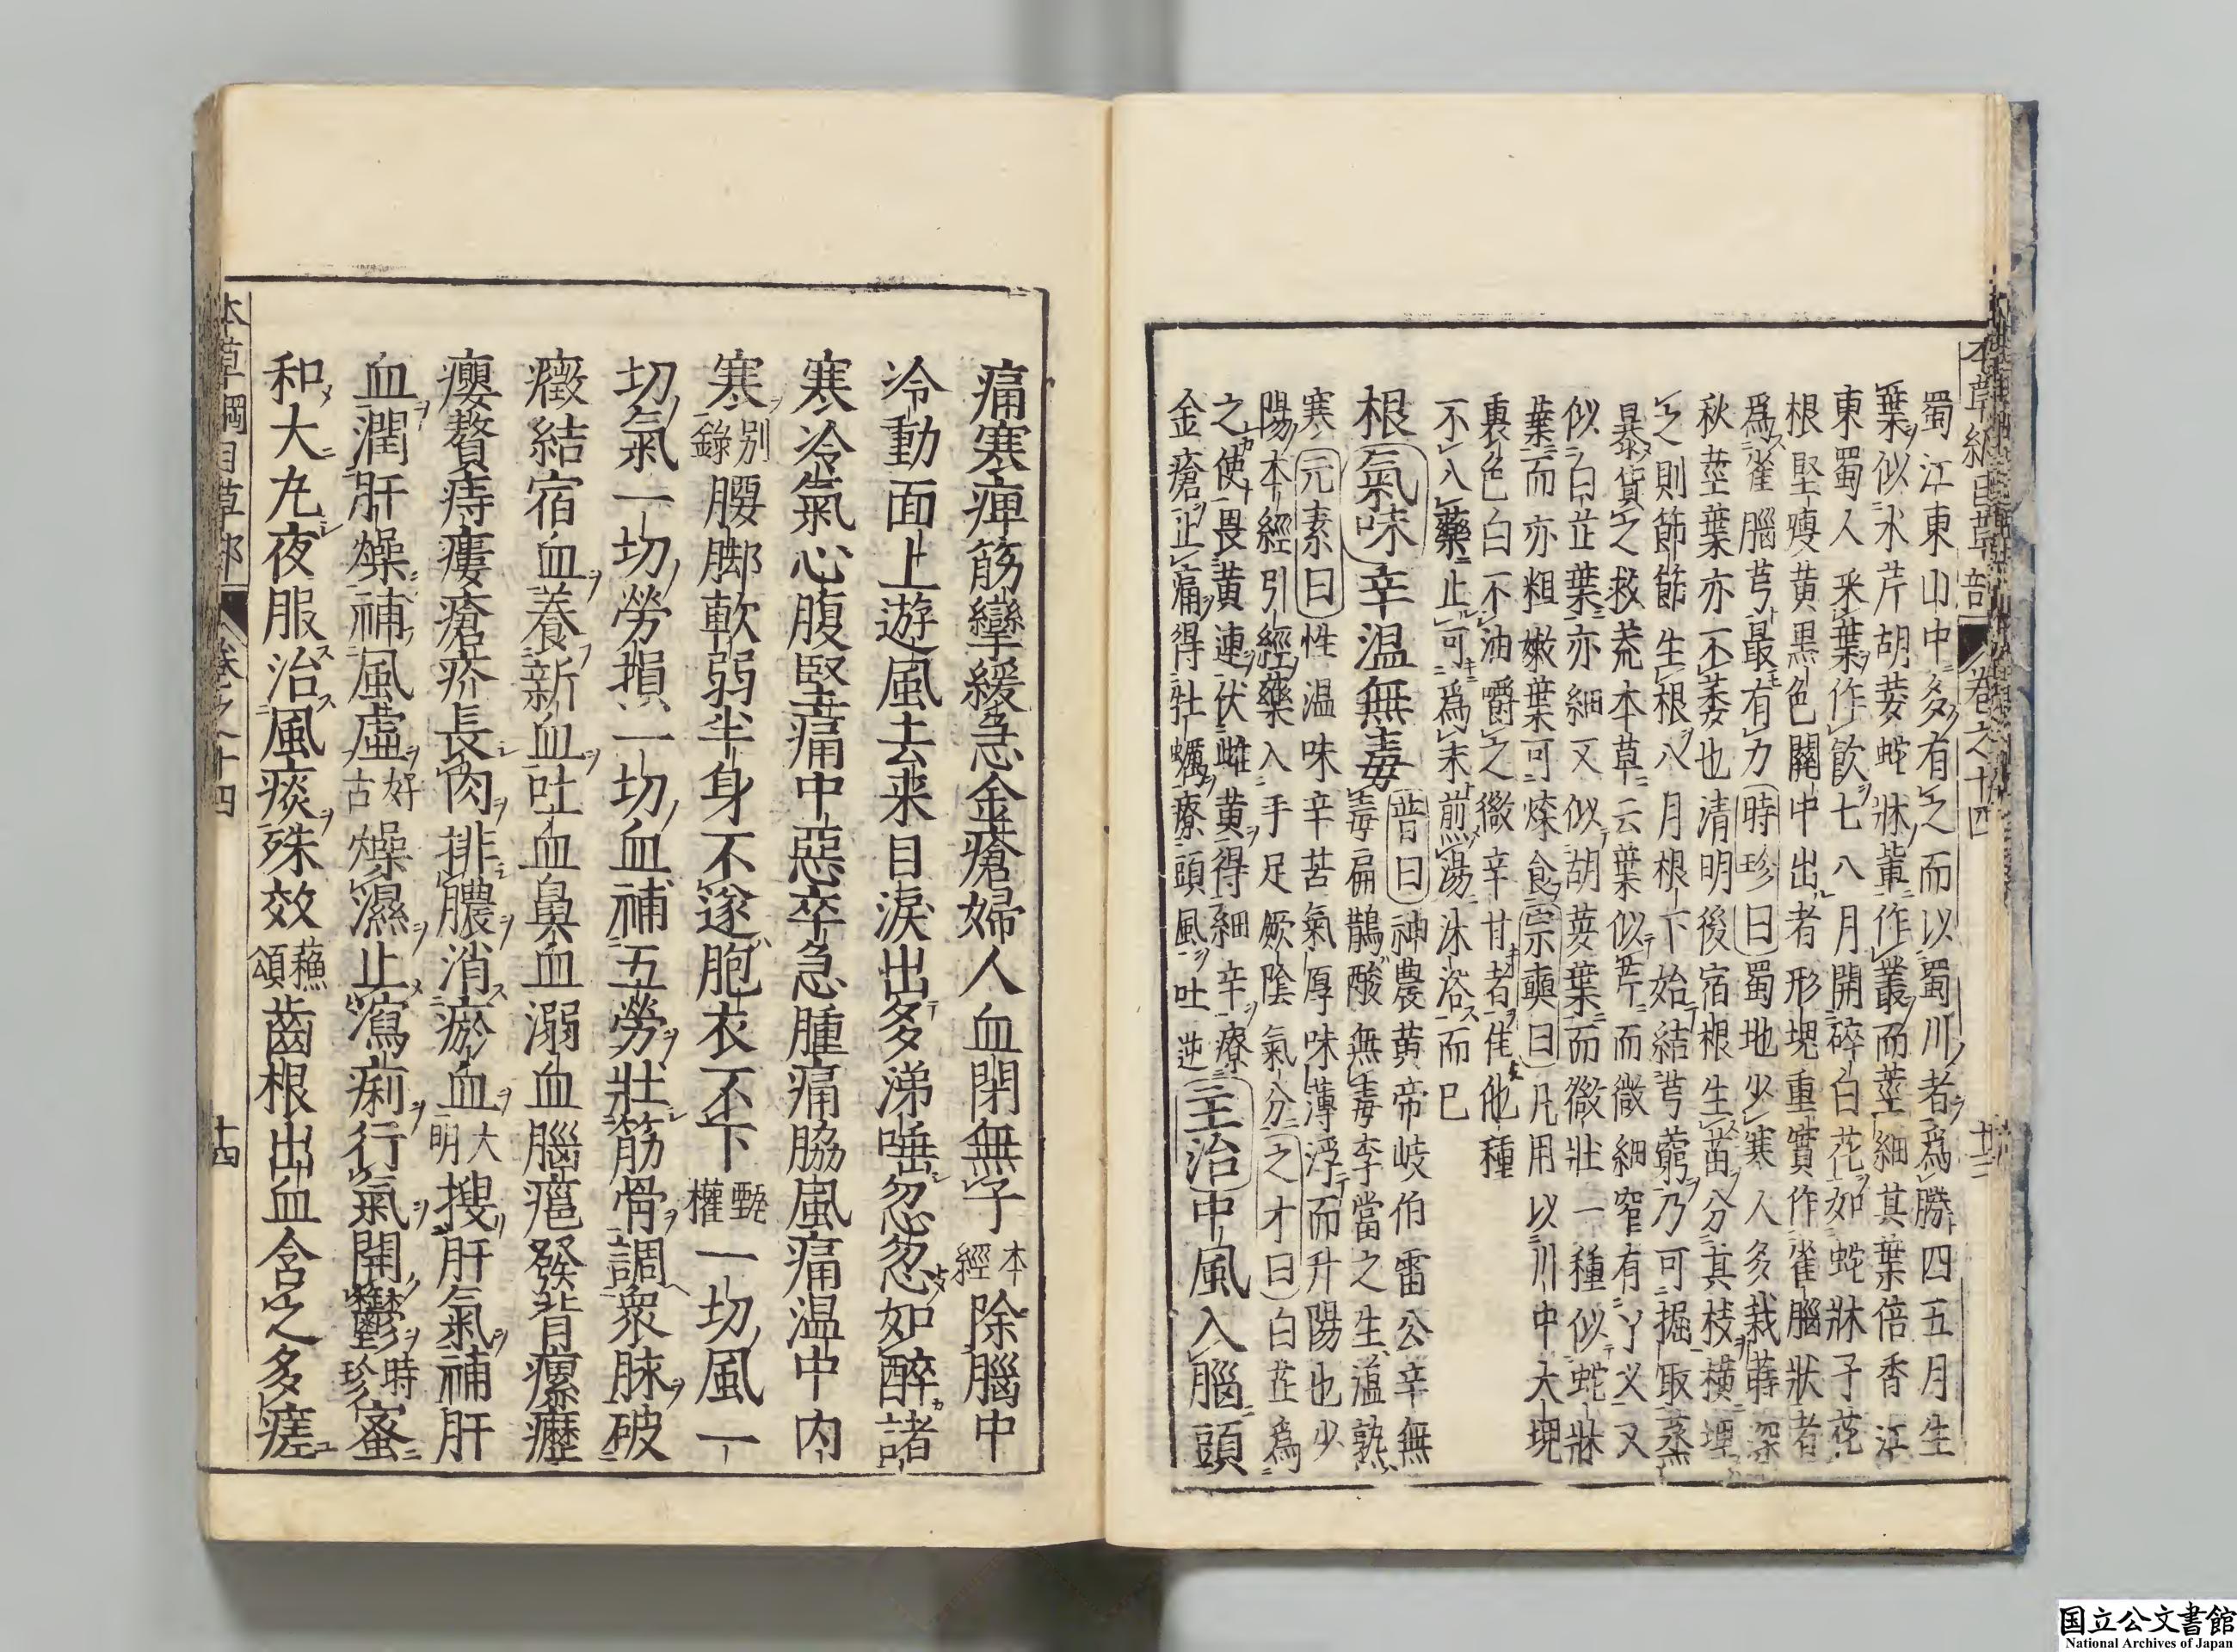 本草綱目草部 卷之十四 十三
蜀江東山中多有之而以蜀川者爲勝四五月生
葉似水芹胡荽蛇牀軰作叢而莖細其葉倍香江
東蜀人采葉作飮七八月開碎白花如蛇牀子花
根堅瘦黃黒色關中出者形塊重實作雀腦狀者
爲雀腦芎最有力時珍曰蜀地少寒人多栽蒔深
秋莖葉亦不萎也清明後宿根生苗分其枝橫埋
之則節節生根八月根下始結芎藭乃可掘取蒸
暴貨之救荒本草云葉似芹而微細窄有丫叉又
似白芷葉亦細又似胡荽葉而微壯一種似蛇牀
葉而亦粗嫩葉可煠食宗奭曰凡用以川中大塊
裏色白不油嚼之微辛甘者佳他種
不入藥止可爲末煎湯沐浴而已
根氣味辛温無毒普曰神農黃帝岐伯雷公辛無
毒扁鵲酸無毒李當之生溫熟
寒元素曰性温味辛苦氣厚味薄浮而升陽也少
陽本經引經藥入手足厥陰氣分之才曰白芷爲
之使畏黃連伏雌黃得細辛療
金瘡止痛得牡蠣療頭風吐逆主治中風入腦頭
痛寒痺筋攣緩急金瘡婦人血閉無子本經除腦中
冷動面上遊風去来目淚出多涕唾忽忽如醉諸
寒冷氣心腹堅痛中惡卒急腫痛脇風痛温中內
寒别錄腰脚軟弱半身不遂胞衣不下甄權一切風一
切氣一切勞損一切血補五勞壯筋骨調衆脉破
癥結宿血養新血吐血鼻血溺血腦癰發背瘰癧
癭贅痔瘻瘡疥長肉排膿消瘀血大明搜肝氣補肝
血潤肝燥補風虛好古燥濕止瀉痢行氣開鬱時珍蜜
和大丸夜服治風痰殊效蘓頌齒根出血含之多瘥
本草綱目草部 卷之十四 十四
国立公文書館
National Archives of Japan